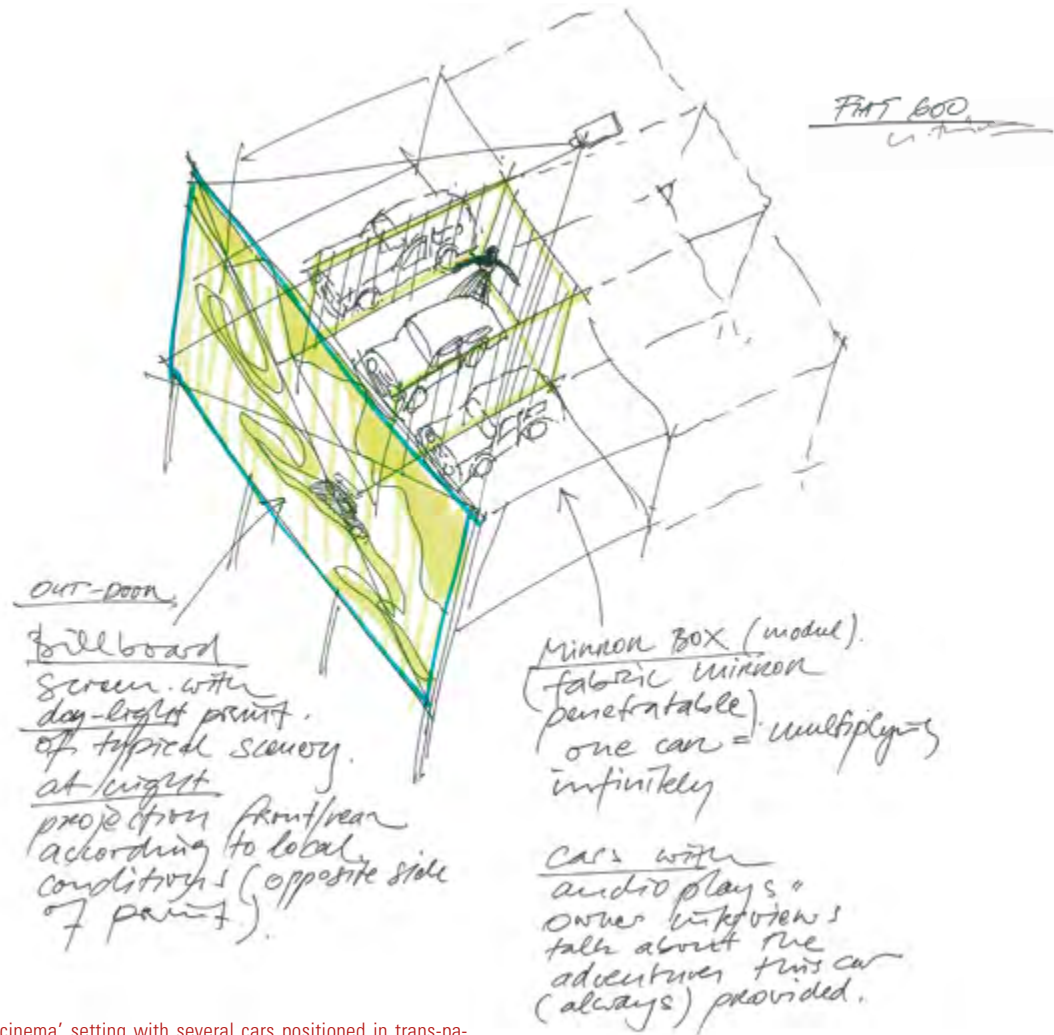 FIAT 600
OUT-DOOR
Billboard
screen with
day-light print.
of typical scenery.
at night
projection front/rear
according to local
conditions (opposite side
of print).
MIRROR BOX (modul).
(fabric mirror
penetratable)
one car = multiplying
infinitely
cars with
audio plays "
owner interviews
talk about the
adventures this car
(always) provided.
cinema' setting with several cars positioned in trans-pa-